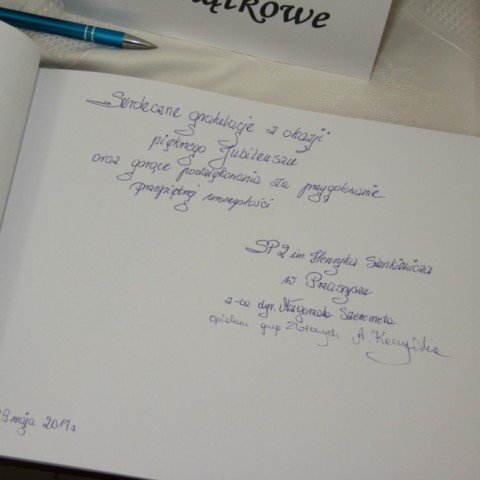 ątkowe
Serdeczne gratulacje z okazji
pięknego Jubileuszu
oraz gorące podziękowania za przygotowanie
przepięknej uroczystości
SP2 im. Henryka Sienkiewicza
w Przasnyszu
z-ca dyr. Małgorzata Szeremeta
opiekun grup zbiorowych
9 maja 2017 r.